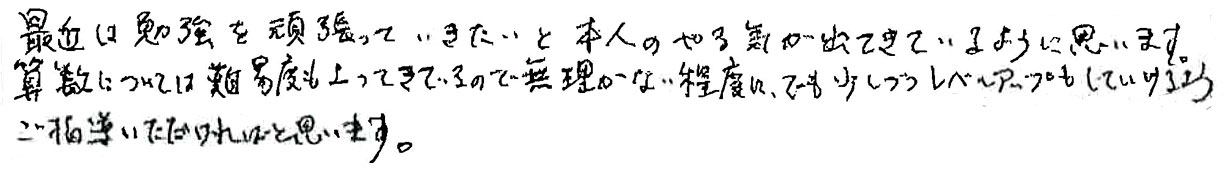 最近は勉強を頑張っていきたいと本人のやる気が出てきているように思います。
算数については難易度も上ってきているので無理がない程度に、でも少しづつレベルアップもしていけるよう
ご指導いただければと思います。